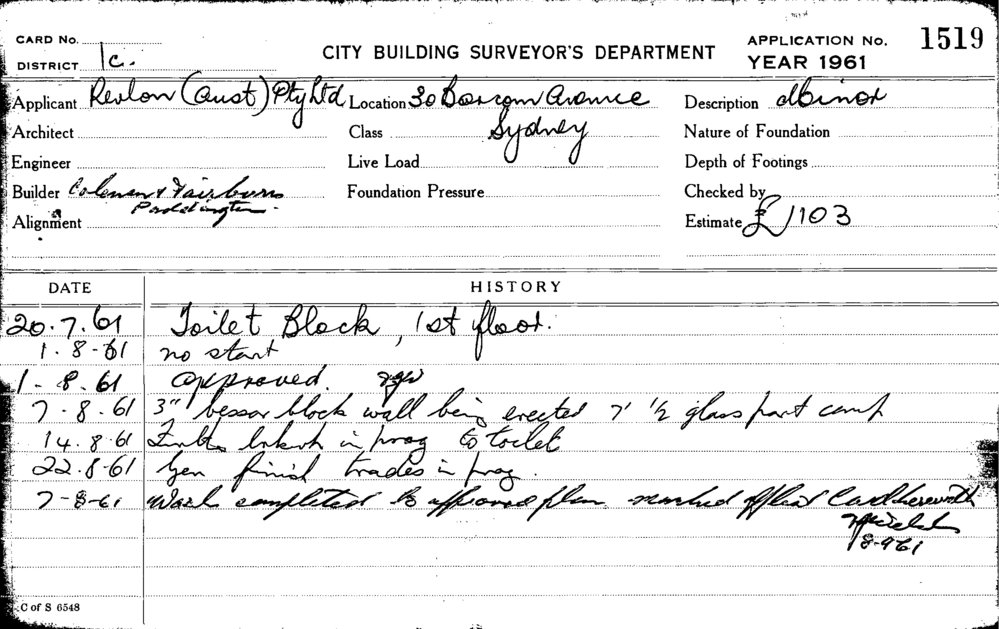 CARD No.
DISTRICT 1c.
CITY BUILDING SURVEYOR'S DEPARTMENT
APPLICATION No. 1519
YEAR 1961
Applicant Revlon (Aust) Pty Ltd Location 30 Boxcom Avenue Description
Architect Class Sydney Nature of Foundation
Engineer Live Load Depth of Footings
Builder Coleman & Fairburn Foundation Pressure Checked by
Paddington
Alignment Estimate £1103
DATE HISTORY
20.7.61 Toilet Block, 1st floor.
1.8-61 no start
1-8.61 approved.
7-8.61 3" bessor block wall being erected 7' ½ glass part
14.8.61 in prog to toilet
22.8-61 Gen finial trades in prog.
7-8-61 Work completed to approved plan marked off
18-9-61
C of S 6548